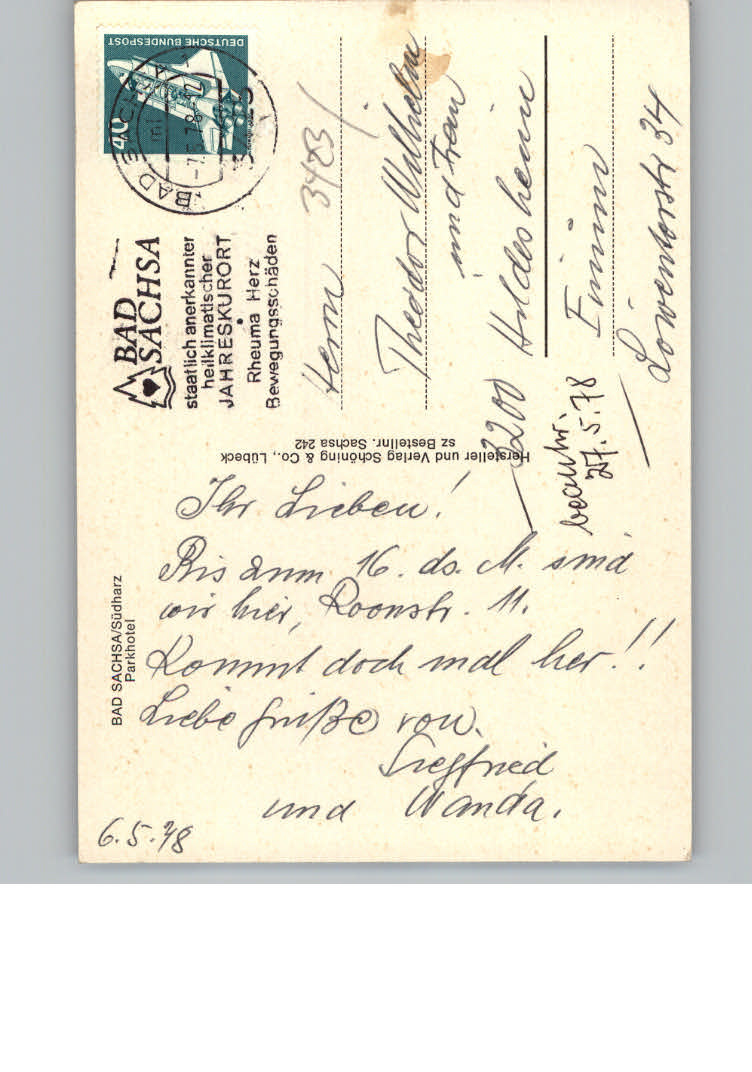 6.5.78
BAD SACHSA/Südharz
Parkhotel
Ihr Lieben!
Bis zum 16. ds. M. sind
wir hier, Roonstr. 11.
Kommt doch mal her!!
Liebe Grüße von
Siegfried
und Wanda.
Hersteller und Verlag Schöning & Co., Lübeck
sz Bestellnr. Sachsa 242
BAD
SACHSA
staatlich anerkannter
heilklimatischer
JAHRESKURORT
Rheuma Herz
Bewegungsschäden
BAD SACHSA
-7.5.78
DEUTSCHE BUNDESPOST
40
Herrn
Theodor Wilhelm
und Frau
3200 Hildesheim
Einum
Löwentorstr 34
beantw.
27.5.78